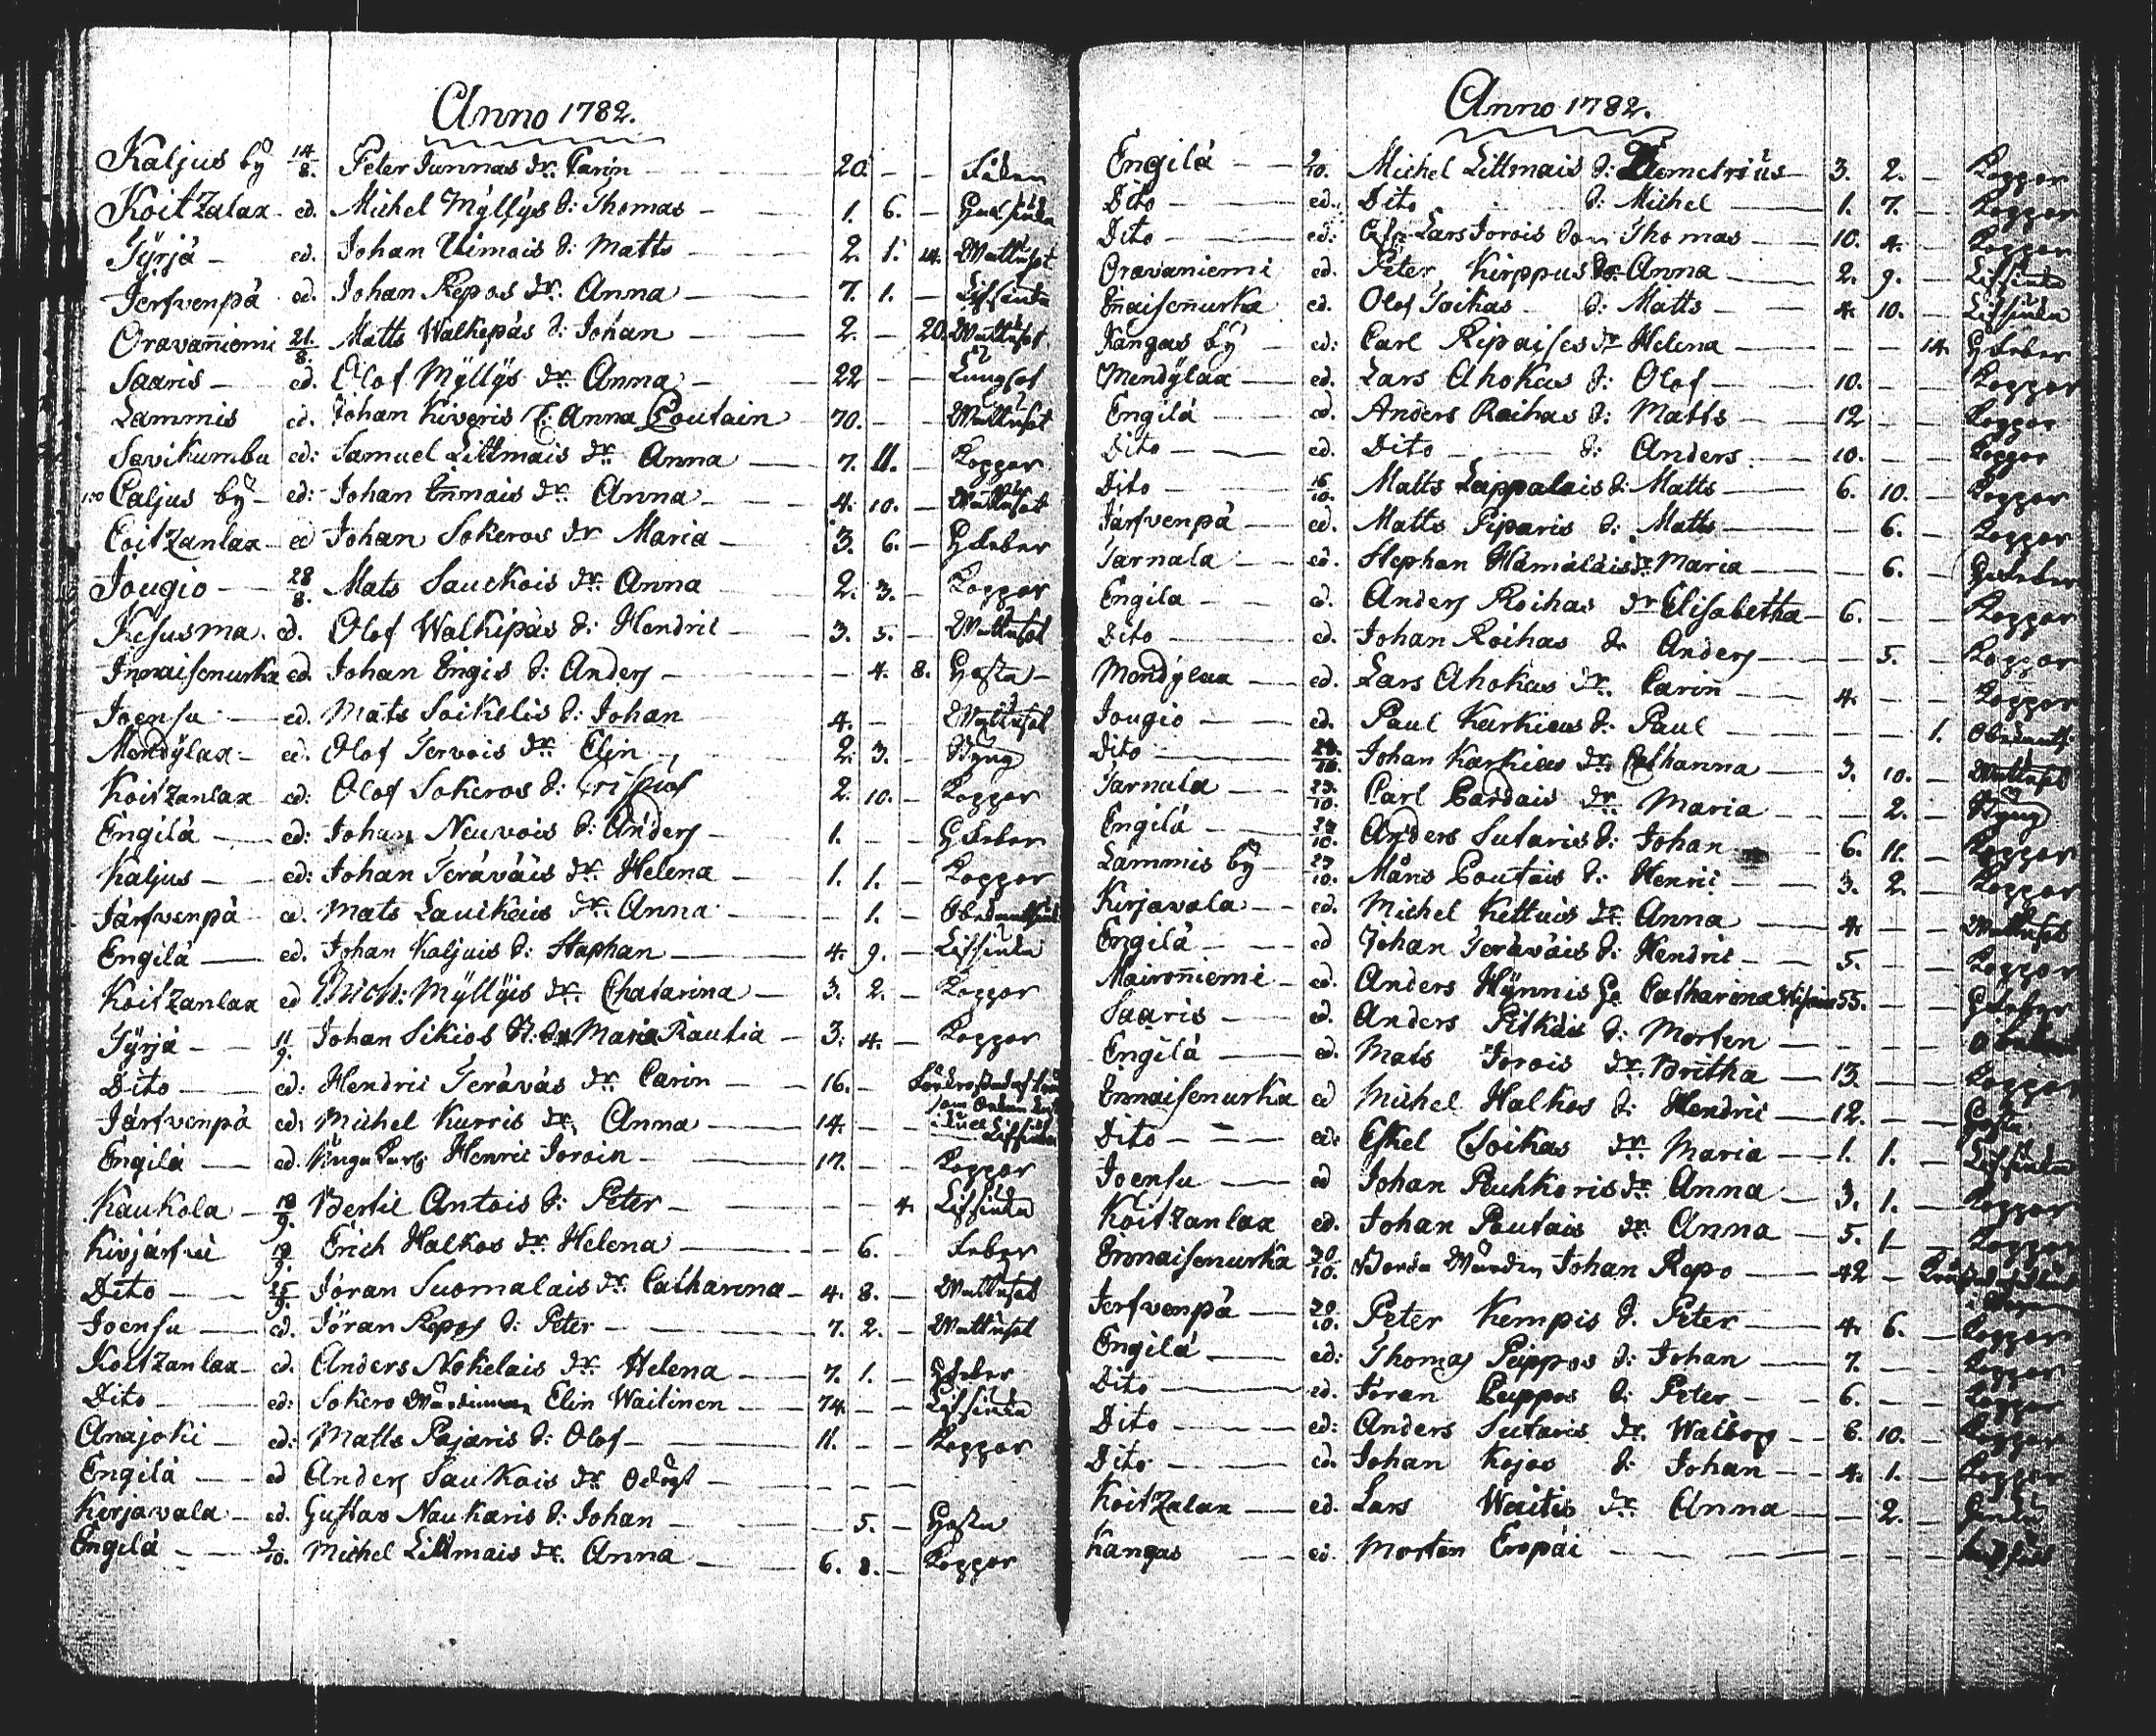 Anno 1782.
Kaljus bÿ 14/8. Peter Junnas dr. Carin 20. - -
Koitzalax ed. Michel Mÿllÿs S: Thomas 1. 6. -
Tÿrjä ed. Johan Uimois S: Matts 2. 1. 14. Mattusot
Jerfvenpä ed. Johan Repos dr. Anna 7. 1. - Lissiuka
Oravaniemi 21/8. Matts Walkepäs S: Johan 2. - 20. Mattusot
Saaris ed. Olof Mÿllÿs dr. Anna 22 - - Lungsot
Lammis ed. Johan Kiveris E: Anna Poutain 70. - - Mattusot
Savikumbu ed: Samuel Littmais dr. Anna 7. 11. - Koppor
Caljus bÿ ed: Johan Inmais dr. Anna 4. 10. - Mattusot
Coitzanlax ed Johan Sokeros dr Maria 3. 6. - H feber
Jougio 28/8. Mats Sauckois dr. Anna 2. 3. - Koppor
Kesusma ed. Olof Walkipäs S: Hendric 3. 5. - Mattusot
Innaisenurka ed. Johan Engis S: Anders - 4. 8. Hosta
Joensu ed. Mats Soikelis S: Johan 4. - - Mattusot
Mendÿlax ed. Olof Tervois dr. Elin 2. 3. - Styng
Koitzanlax ed: Olof Sokeros S: 2. 10. - Koppor
Engilä ed: Johan Neuvois S: Anders 1. - - H feber
Kaljus ed: Johan Teräväis dr. Helena 1. 1. - Koppor
Järfvenpä ed. Mats Lauikais dr. Anna - 1. -
Engilä ed. Johan Kaljuis S: Staphan 4. 9. - Lissiuka
Koitzanlax ed Erich: Mÿllÿis dr. Chatarina 3. 2. - Koppor
Tÿrjä 11/9. Johan Sikios Maria Rautia 3. 4. - Koppor
Dito ed: Hendric Teräväs dr. Carin 16. -
Järfvenpä ed: Michel Kurris dr. Anna 14. - - Lissiuka
Engilä ed. Henric Joroin 17. - - Koppor
Kaukola 18/9. Bertil Antois S: Peter - - 4. Lissiuka
Kivjärfvi 19/9. Erich Halkos dr. Helena - 6. - Feber
Dito 25/9. Jöran Suomalais dr. Catharina 4. 8. - Mattusot
Joensu ed. Jöran Repos S: Peter 7. 2. - Mattusot
Koitzanlax ed. Anders Nokelais dr. Helena 7. 1. - H feber
Dito ed: Sokero Elin Waitinen 74. - - Lissiuka
Anajoki ed: Matts Pajaris S: Olof 11. - - Koppor
Engilä ed Anders Saukois dr. odöpt - - -
Kirjavala ed. Gustav Naukaris S: Johan - 5. - Hosta
Engilä 9/10. Michel Littmais dr. Anna 6. 8. - Koppor
Anno 1782.
Engilä /10. Michel Littmais S: Demetrius 3. 2. - Koppor
Dito ed. Dito S: Michel 1. 7. - Koppor
Dito ed: Lars Jorois Son Thomas 10. 4. - Koppor
Oravaniemi ed. Peter Kirppus dr Anna 2. 9. - Lissiuka
Enaisenurka ed. Olof Toikas S: Matts 4. 10. - Lissiuka
Kangas bÿ ed: Carl Ripaises dr Helena - - 14. H feber
Mendÿlax ed. Lars Ahokas S: Olof 10. - - Koppor
Engilä ed. Anders Roihas S: Matts 12 - - Koppor
Dito ed. Dito S: Anders 10. - - Koppor
Dito 16/10. Matts Lappalais S: Matts 6. 10. - Koppor
Järfvenpä ed. Matts Piparis S: Matts - 6. - Koppor
Tarnala ed. Stephan Hämäläis dr Maria - 6. - H feber
Engila ed. Anders Roihas dr Elisabetha 6. - - Koppor
Dito ed. Johan Roihas S: Anders - 5. - Koppor
Mondÿlax ed. Lars Ahokas dr. Carin 4. - - Koppor
Jougio ed. Paul Karkias S: Paul - - 1.
Dito 23/10. Johan Karkias dr. Cathanna 3. 10. - Mattusot
Tarnala 23/10. Carl Pardais dr. Maria - 2. - Styng
Engilä 27/10. Anders Sutaris S: Johan 6. 11. - Koppor
Lammis bÿ 27/10. Måns Poutais S: Henric 3. 2. - Koppor
Kirjavala ed. Michel Kettuis dr. Anna 4. - - Mattusot
Engilä ed Johan Teräväis S: Hendric 5. - - Koppor
Maironiemi ed. Anders Hÿnnis Catharina 55. - - H feber
Saaris ed. Anders Pitkäis S: Morten - - -
Engilä ed. Mats Jorois dr. Britha 13. - - Koppor
Ennaisenurka ed Michel Halkos S: Hendric 12. - - Hosta
Dito ed: Eskel Toikas dr. Maria 1. 1. - Lissiuka
Joensu ed Johan Peuhkoris dr. Anna 3. 1. - Koppor
Koitzanlax ed. Johan Pautais dr. Anna 5. 1 - Koppor
Ennaisenurka 30/10. Johan Repo 42 -
Jerfvenpä 30/10. Peter Kempis S. Peter 4. 6. - Koppor
Engilä ed: Thomas Peippos S: Johan 7. - - Koppor
Dito ed. Jöran Peippos S: Peter 6. - - Koppor
Dito ed: Anders Sutaris dr. Walborg 6. 10. - Koppor
Dito ed. Johan Kojos S: Johan 4. 1. - Koppor
Koitzalax ed. Lars Waitis dr. Anna - 2. -
Kangas ed. Morten Eropäi - - -